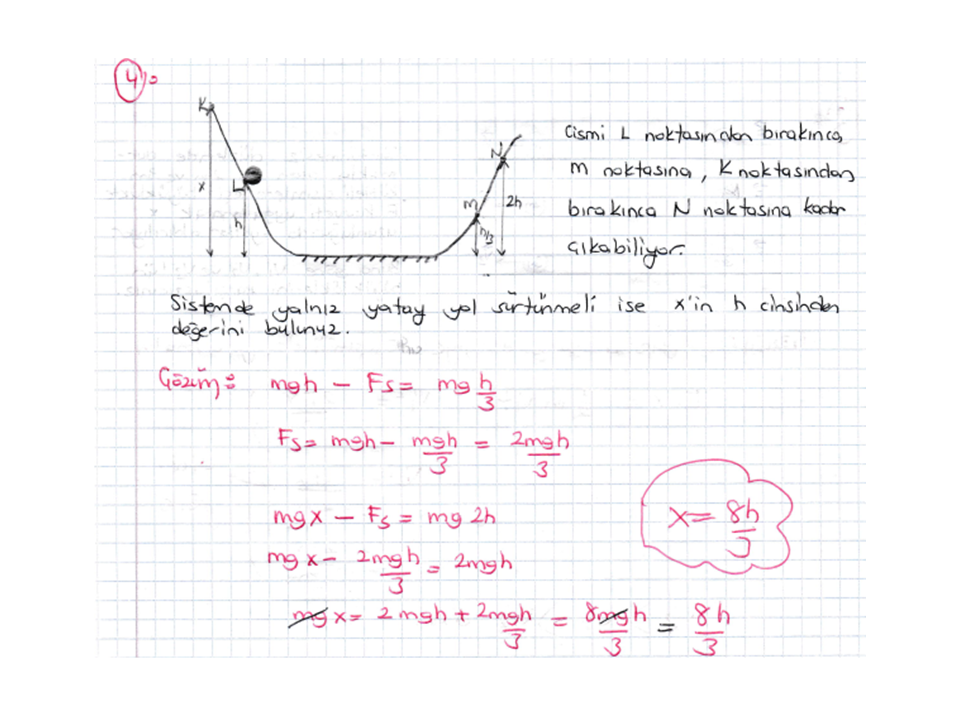 4)
K
L
x
h
M
h/3
N
2h
Cismi L noktasından bırakınca
m noktasına, K noktasından
bırakınca N noktasına kadar
çıkabiliyor.
Sistemde yalnız yatay yol sürtünmeli ise x'in h cinsinden
değerini bulunuz.
Çözüm: mgh - Fs = mg h/3
Fs = mgh - mgh/3 = 2mgh/3
mgx - Fs = mg 2h
mgx - 2mgh/3 = 2mgh
mgx = 2mgh + 2mgh/3 = 8mgh/3 = 8h/3
x = 8h/3